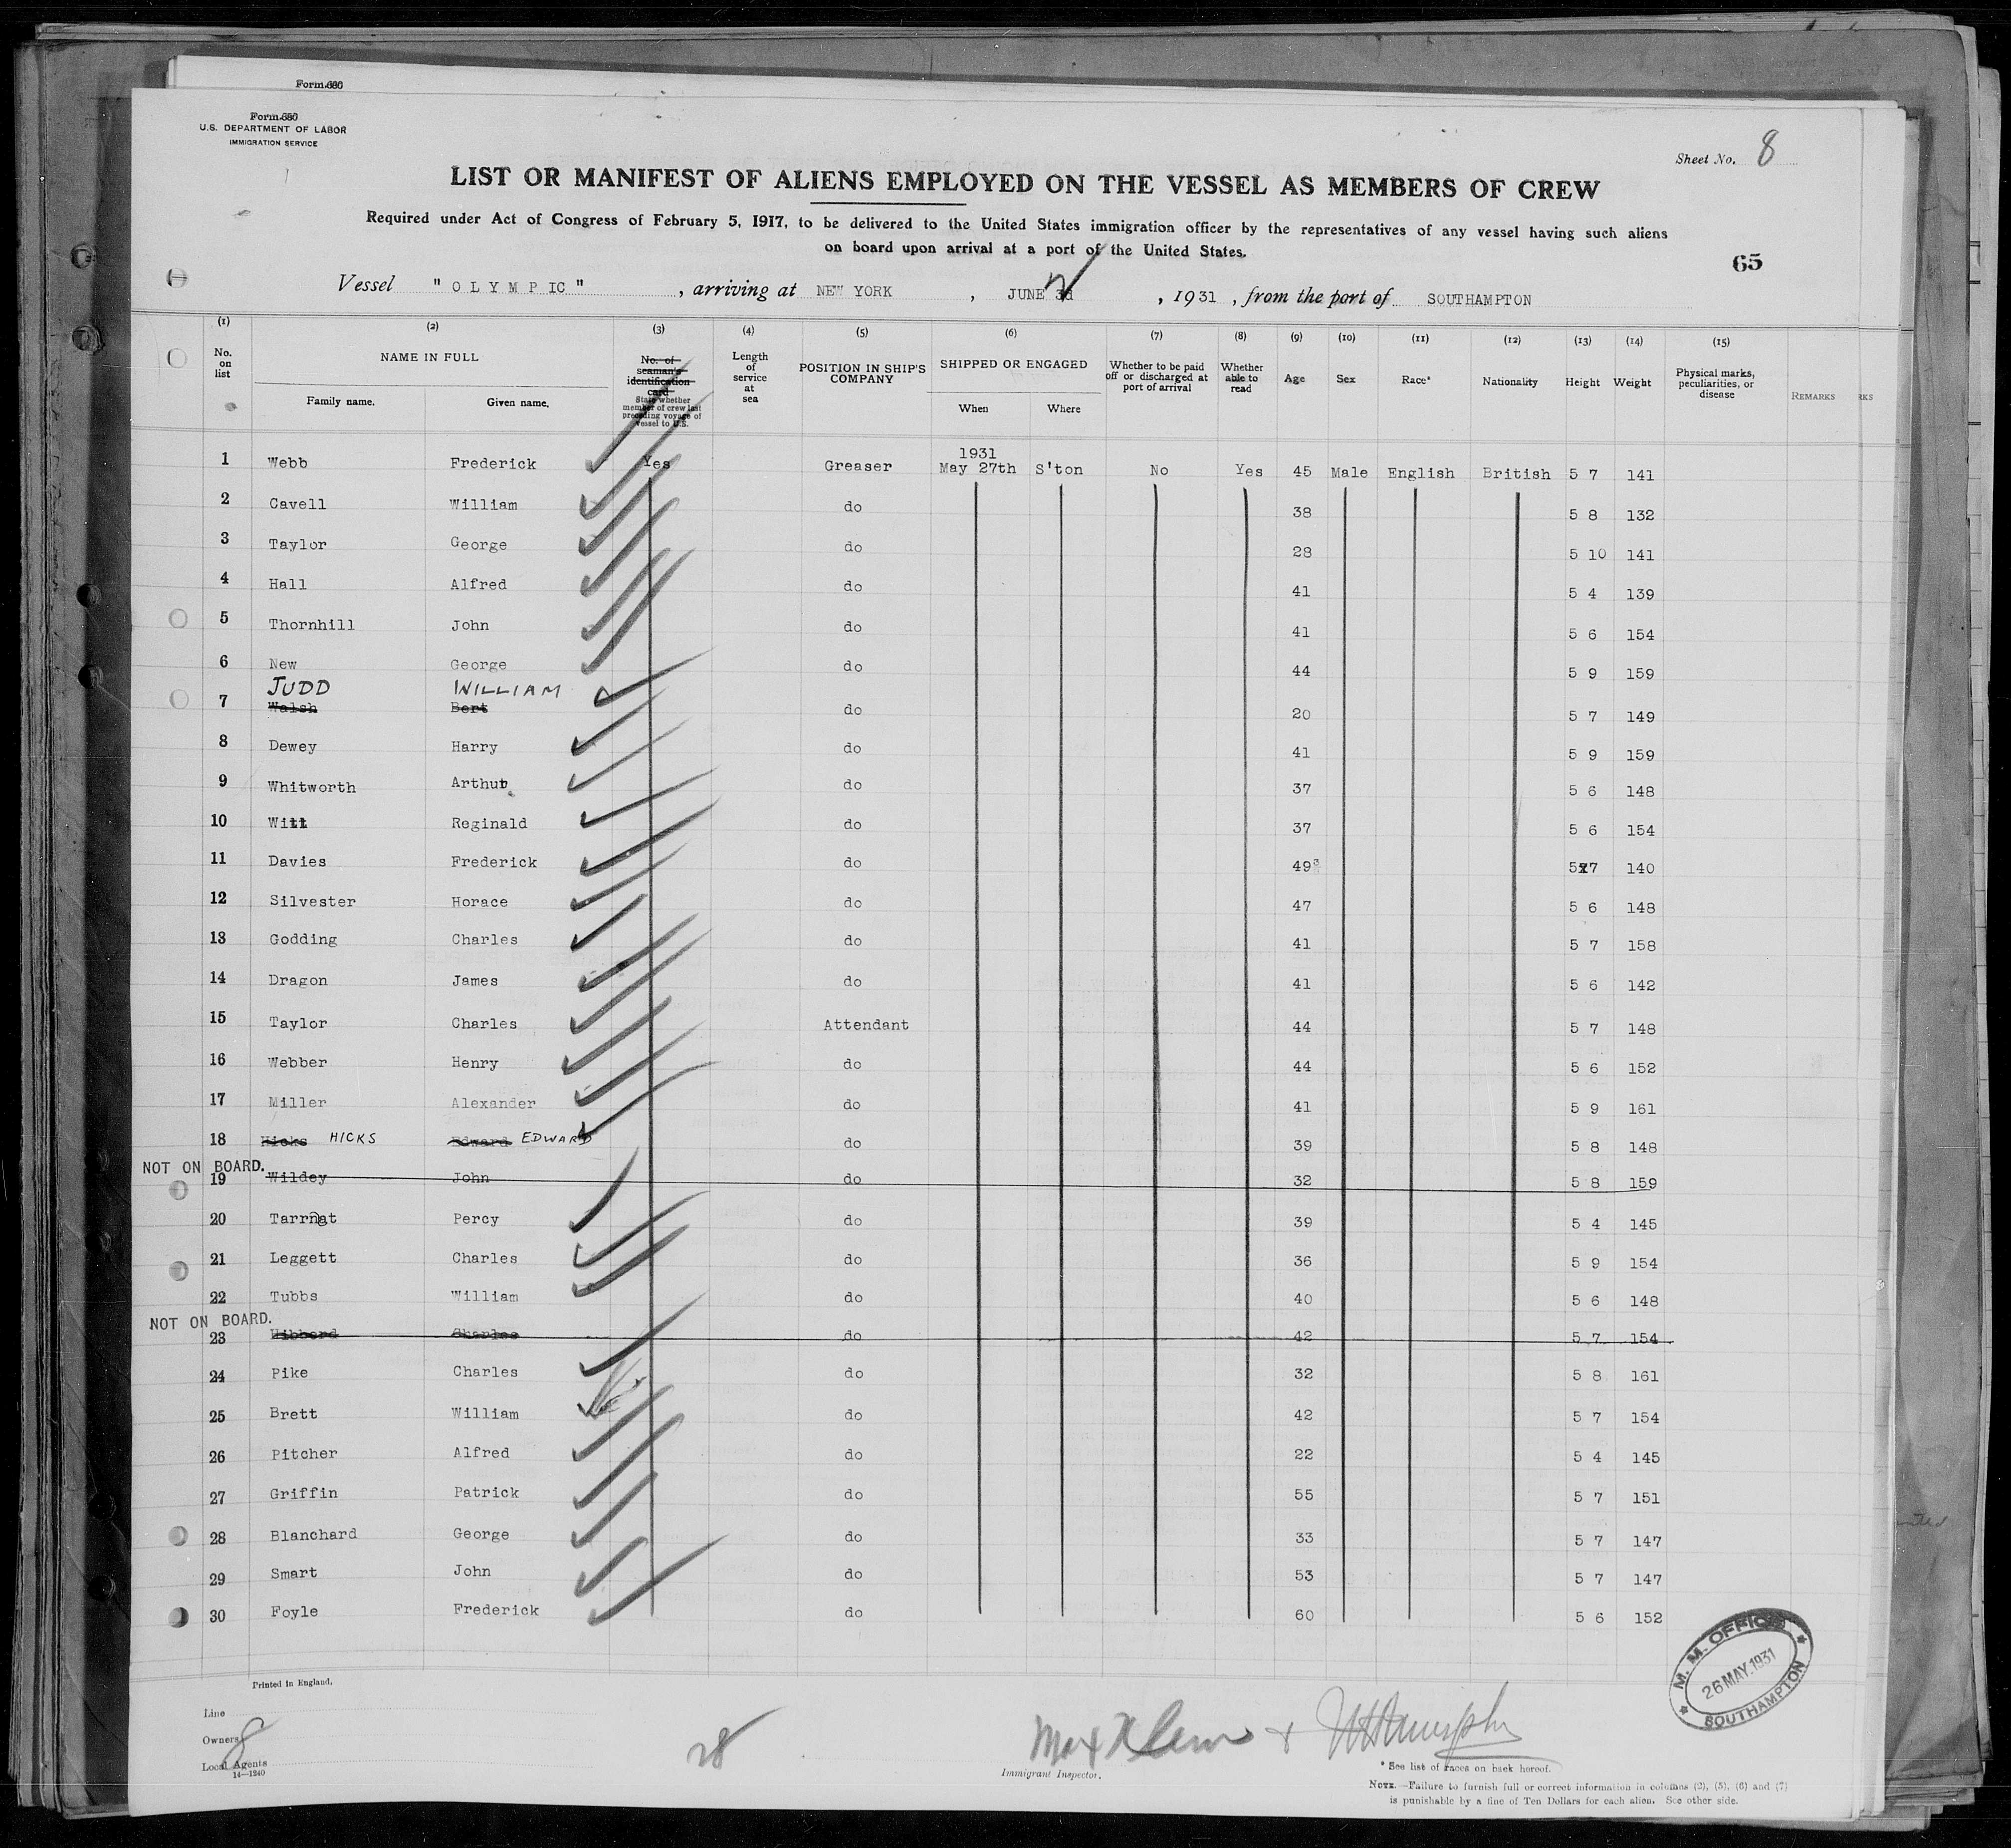 Form 680
Form 680
U.S. DEPARTMENT OF LABOR
IMMIGRATION SERVICE
Sheet No. 8
LIST OR MANIFEST OF ALIENS EMPLOYED ON THE VESSEL AS MEMBERS OF CREW
Required under Act of Congress of February 5, 1917, to be delivered to the United States immigration officer by the representatives of any vessel having such aliens
on board upon arrival at a port of the United States.
65
Vessel " O L Y M P IC " , arriving at NEW YORK , JUNE , 1931 , from the port of SOUTHAMPTON
(1) (2) (3) (4) (5) (6) (7) (8) (9) (10) (11) (12) (13) (14) (15)
No. on list NAME IN FULL Family name. Given name. No. of seaman's identification card State whether member of crew last preceding voyage of vessel to U.S. Length of service at sea POSITION IN SHIP'S COMPANY SHIPPED OR ENGAGED When Where Whether to be paid off or discharged at port of arrival Whether able to read Age Sex Race* Nationality Height Weight Physical marks, peculiarities, or disease REMARKS RKS
1931
1 Webb Frederick Yes Greaser May 27th S'ton No Yes 45 Male English British 5 7 141
2 Cavell William do 38 5 8 132
3 Taylor George do 28 5 10 141
4 Hall Alfred do 41 5 4 139
5 Thornhill John do 41 5 6 154
6 New George do 44 5 9 159
JUDD WILLIAM
7 Walsh Bert do 20 5 7 149
8 Dewey Harry do 41 5 9 159
9 Whitworth Arthur do 37 5 6 148
10 Witt Reginald do 37 5 6 154
11 Davies Frederick do 49 5 7 140
12 Silvester Horace do 47 5 6 148
13 Godding Charles do 41 5 7 158
14 Dragon James do 41 5 6 142
15 Taylor Charles Attendant 44 5 7 148
16 Webber Henry do 44 5 6 152
17 Miller Alexander do 41 5 9 161
18 Hicks HICKS Edward EDWARD do 39 5 8 148
NOT ON BOARD.
19 Wildey John do 32 5 8 159
20 Tarrnat Percy do 39 5 4 145
21 Leggett Charles do 36 5 9 154
22 Tubbs William do 40 5 6 148
NOT ON BOARD.
23 Hibberd Charles do 42 5 7 154
24 Pike Charles do 32 5 8 161
25 Brett William do 42 5 7 154
26 Pitcher Alfred do 22 5 4 145
27 Griffin Patrick do 55 5 7 151
28 Blanchard George do 33 5 7 147
29 Smart John do 53 5 7 147
30 Foyle Frederick do 60 5 6 152
M. M. OFFICE
26 MAY. 1931
SOUTHAMPTON
Printed in England.
Line
Owners
8
Local Agents
14—1240
28
Max Klein +
Immigrant Inspector.
* See list of races on back hereof.
NOTE.—Failure to furnish full or correct information in columns (2), (5), (6) and (7)
is punishable by a fine of Ten Dollars for each alien. See other side.